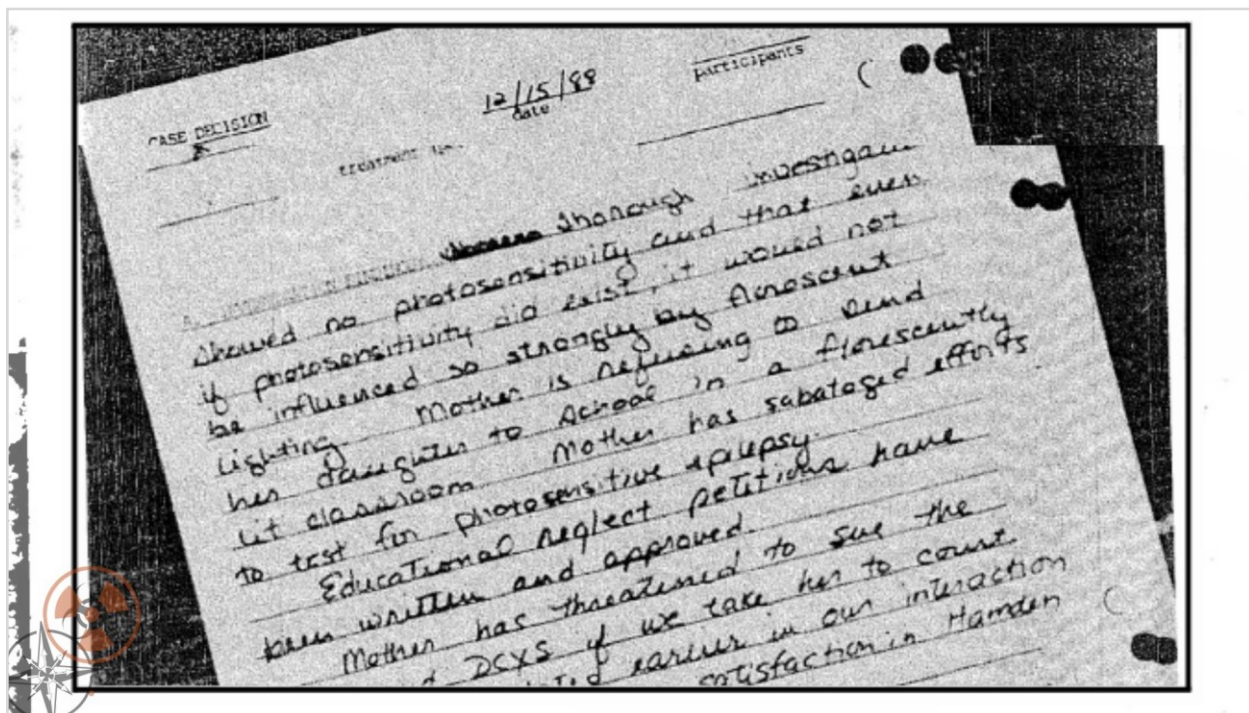 CASE DECISION
12/15/88
date
participants
treatment
thorough
showed no photosensitivity and that even
if photosensitivity did exist, it would not
be influenced so strongly by florescent
lighting. Mother is refusing to send
her daughter to school in a florescently
lit classroom. Mother has sabataged efforts
to test for photosensitive epilepsy.
Educational neglect petitions have
been written and approved.
Mother has threatened to sue the
DCYS if we take her to court.
earlier in our interaction
satisfaction in Hamden